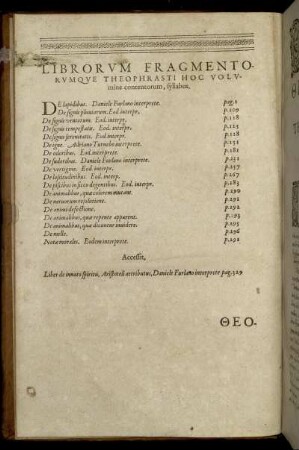 LIBRORVM FRAGMENTO-
RVMQVE THEOPHRASTI HOC VOLV-
mine contentorum, syllabus.
DE lapidibus. Daniele Furlano interprete. pag. 1
De signis pluviarum. Eod. interp. p. 109
De signis ventorum. Eod. interp. p. 118
De signis tempestatis. Eod. interp. p. 123
De signis serenitatis. Eod. interp. p. 128
De igne. Adriano Turnebo interprete. p. 131
De odoribus. Eod. interprete. p. 181
De sudoribus. Daniele Furlano interprete. p. 231
De vertigine. Eod. interp. p. 257
De lassitudinibus. Eod. interp. p. 267
De piscibus in sicco degentibus. Eod. interpr. p. 283
De animalibus, quæ colorem mutant. p. 290
De nervorum resolutione. p. 291
De animi defectione. p. 292
De animalibus, quæ repente apparent. p. 293
De animalibus, quæ dicuntur invidere. p. 295
De melle. p. 296
Notæ morales. Eodem interprete. p. 298
Accessit,
Liber de innato spiritu, Aristoteli attributus, Daniele Furlano interprete pag. 329
ΘΕΟ-